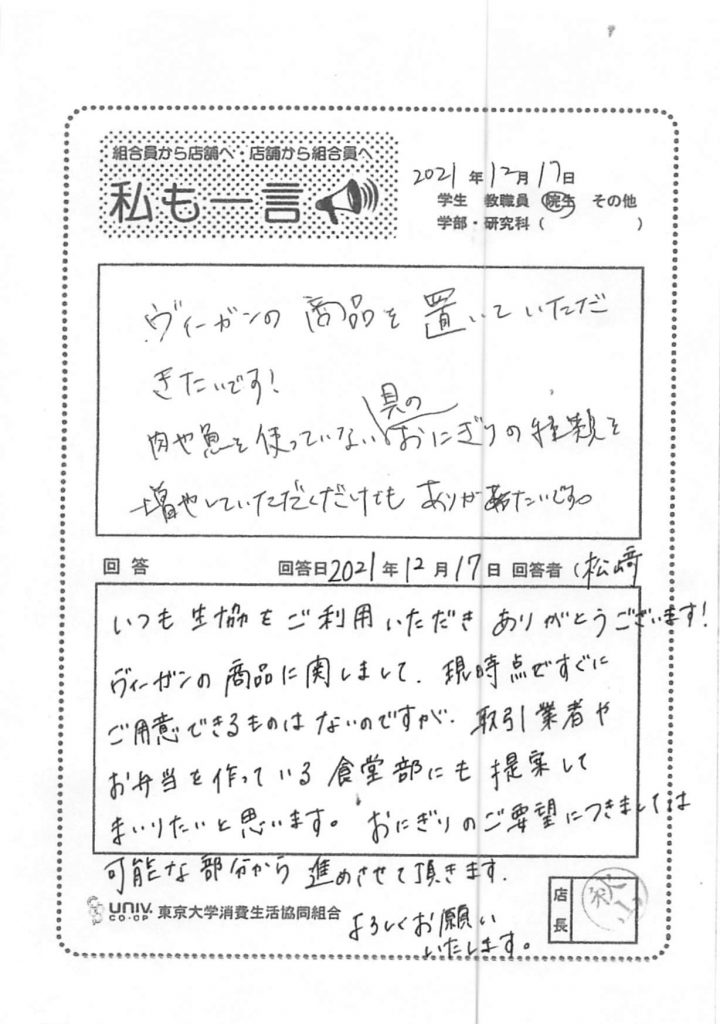 組合員から店舗へ・店舗から組合員へ
私も一言
2021年12月17日
学生 教職員 院生 その他
学部・研究科( )
ヴィーガンの商品を置いていただ
きたいです!
具の
肉や魚を使っていないおにぎりの種類を
増やしていただくだけでもありが難たいです。
回答 回答日2021年12月17日 回答者(松﨑
いつも生協をご利用いただきありがとうございます!
ヴィーガンの商品に関しまして、現時点ですぐに
ご用意できるものはないのですが、取引業者や
お弁当を作っている食堂部にも提案して
まいりたいと思います。おにぎりのご要望につきましては
可能な部分から進めさせて頂きます。
よろしくお願い
いたします。
UNIV. CO-OP 東京大学消費生活協同組合
店長